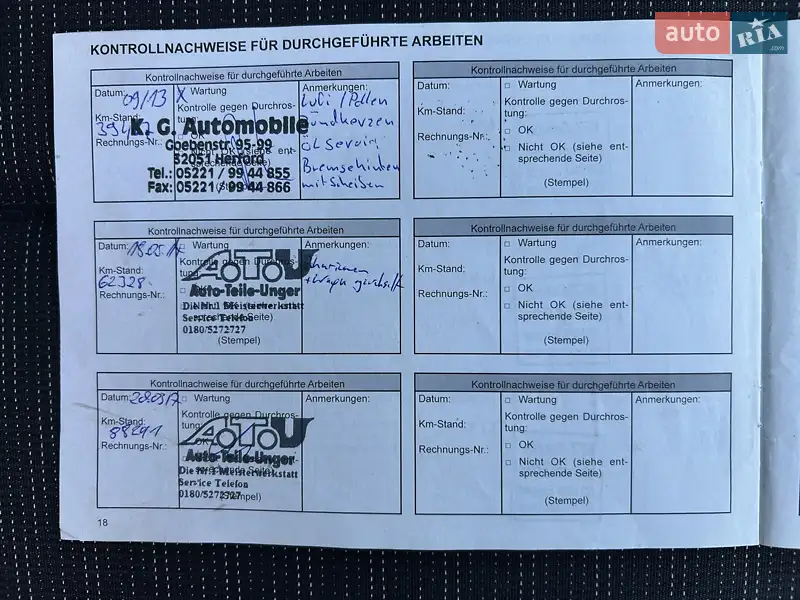 KONTROLLNACHWEISE FÜR DURCHGEFÜHRTE ARBEITEN
auto RIA .com
Kontrollnachweise für durchgeführte Arbeiten
Datum: 09/13
Km-Stand:
Rechnungs-Nr.:
X Wartung
Kontrolle gegen Durchros-
tung:
OK
Nicht OK (siehe ent-
sprechende Seite)
(Stempel)
K. G. Automobile
Goebenstr. 95-99
32051 Herford
Tel.: 05221 / 99 44 855
Fax: 05221 / 99 44 866
Anmerkungen:
Lufi / Pollen
Zündkerzen
Öl Service
Bremse hinten
mit Scheiben
Kontrollnachweise für durchgeführte Arbeiten
Datum:
Km-Stand:
Rechnungs-Nr.:
Wartung
Kontrolle gegen Durchros-
tung:
OK
Nicht OK (siehe ent-
sprechende Seite)
(Stempel)
Anmerkungen:
Kontrollnachweise für durchgeführte Arbeiten
Datum:
Km-Stand:
62328
Rechnungs-Nr.:
Wartung
Kontrolle gegen Durchros-
tung:
(Stempel)
ATU
Auto-Teile-Unger
Die Nr.1 Meisterwerkstatt
Service Telefon
0180/5272727
Anmerkungen:
Kontrollnachweise für durchgeführte Arbeiten
Datum:
Km-Stand:
Rechnungs-Nr.:
Wartung
Kontrolle gegen Durchros-
tung:
OK
Nicht OK (siehe ent-
sprechende Seite)
(Stempel)
Anmerkungen:
Kontrollnachweise für durchgeführte Arbeiten
Datum: 28.09.17
Km-Stand:
88291
Rechnungs-Nr.:
Wartung
Kontrolle gegen Durchros-
tung:
OK
sprechende Seite)
(Stempel)
ATU
Auto-Teile-Unger
Die Nr.1 Meisterwerkstatt
Service Telefon
0180/5272727
Anmerkungen:
Kontrollnachweise für durchgeführte Arbeiten
Datum:
Km-Stand:
Rechnungs-Nr.:
Wartung
Kontrolle gegen Durchros-
tung:
OK
Nicht OK (siehe ent-
sprechende Seite)
(Stempel)
Anmerkungen:
18